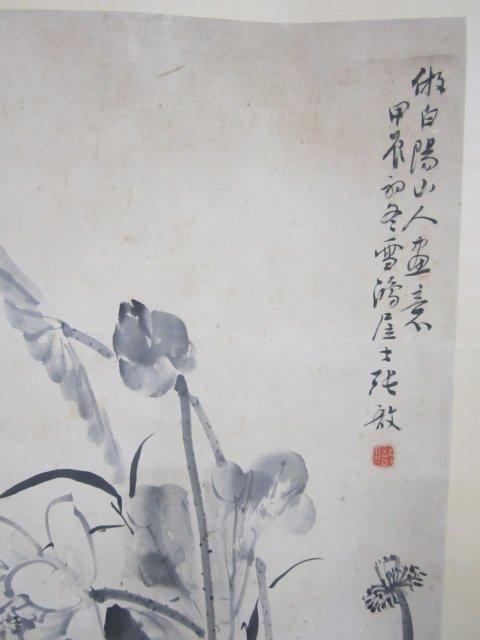 倣白陽山人画意
甲辰初冬雪鴻居士張敔